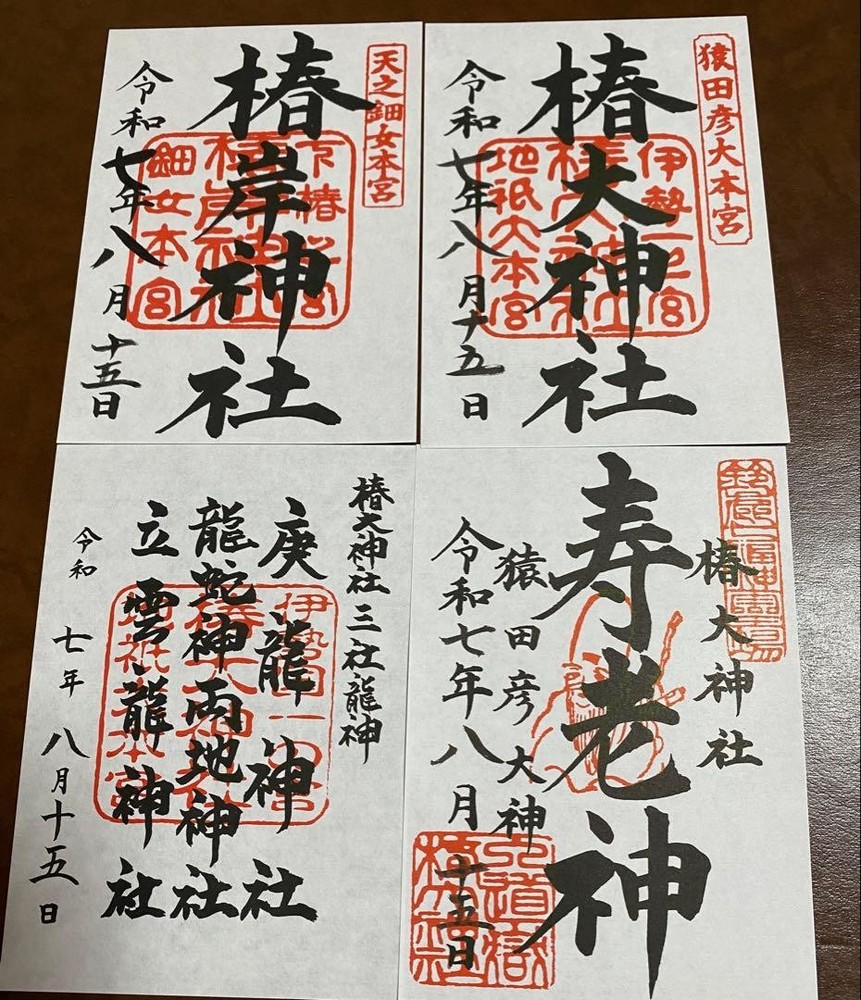 猿田彦大本宮
椿大神社
伊勢一之宮
地祇大本宮
令和七年八月十五日
天之鈿女本宮
椿岸神社
鈿女本宮
令和七年八月十五日
椿大神社
寿老神
猿田彦大神
令和七年八月十五日
椿大神社三社龍神
庚龍神社
龍蛇神両地神社
立雲龍神社
伊勢国一の宮
令和七年八月十五日